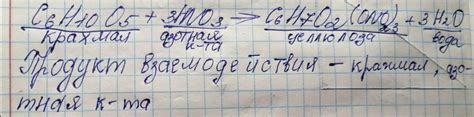 C6H10O5 + 3HNO3 → C6H7O2(ONO2)3 + 3H2O
крахмал азотная к-та целлюлоза вода
Продукт взаемодействия - крахмал, азо-
тная к-та